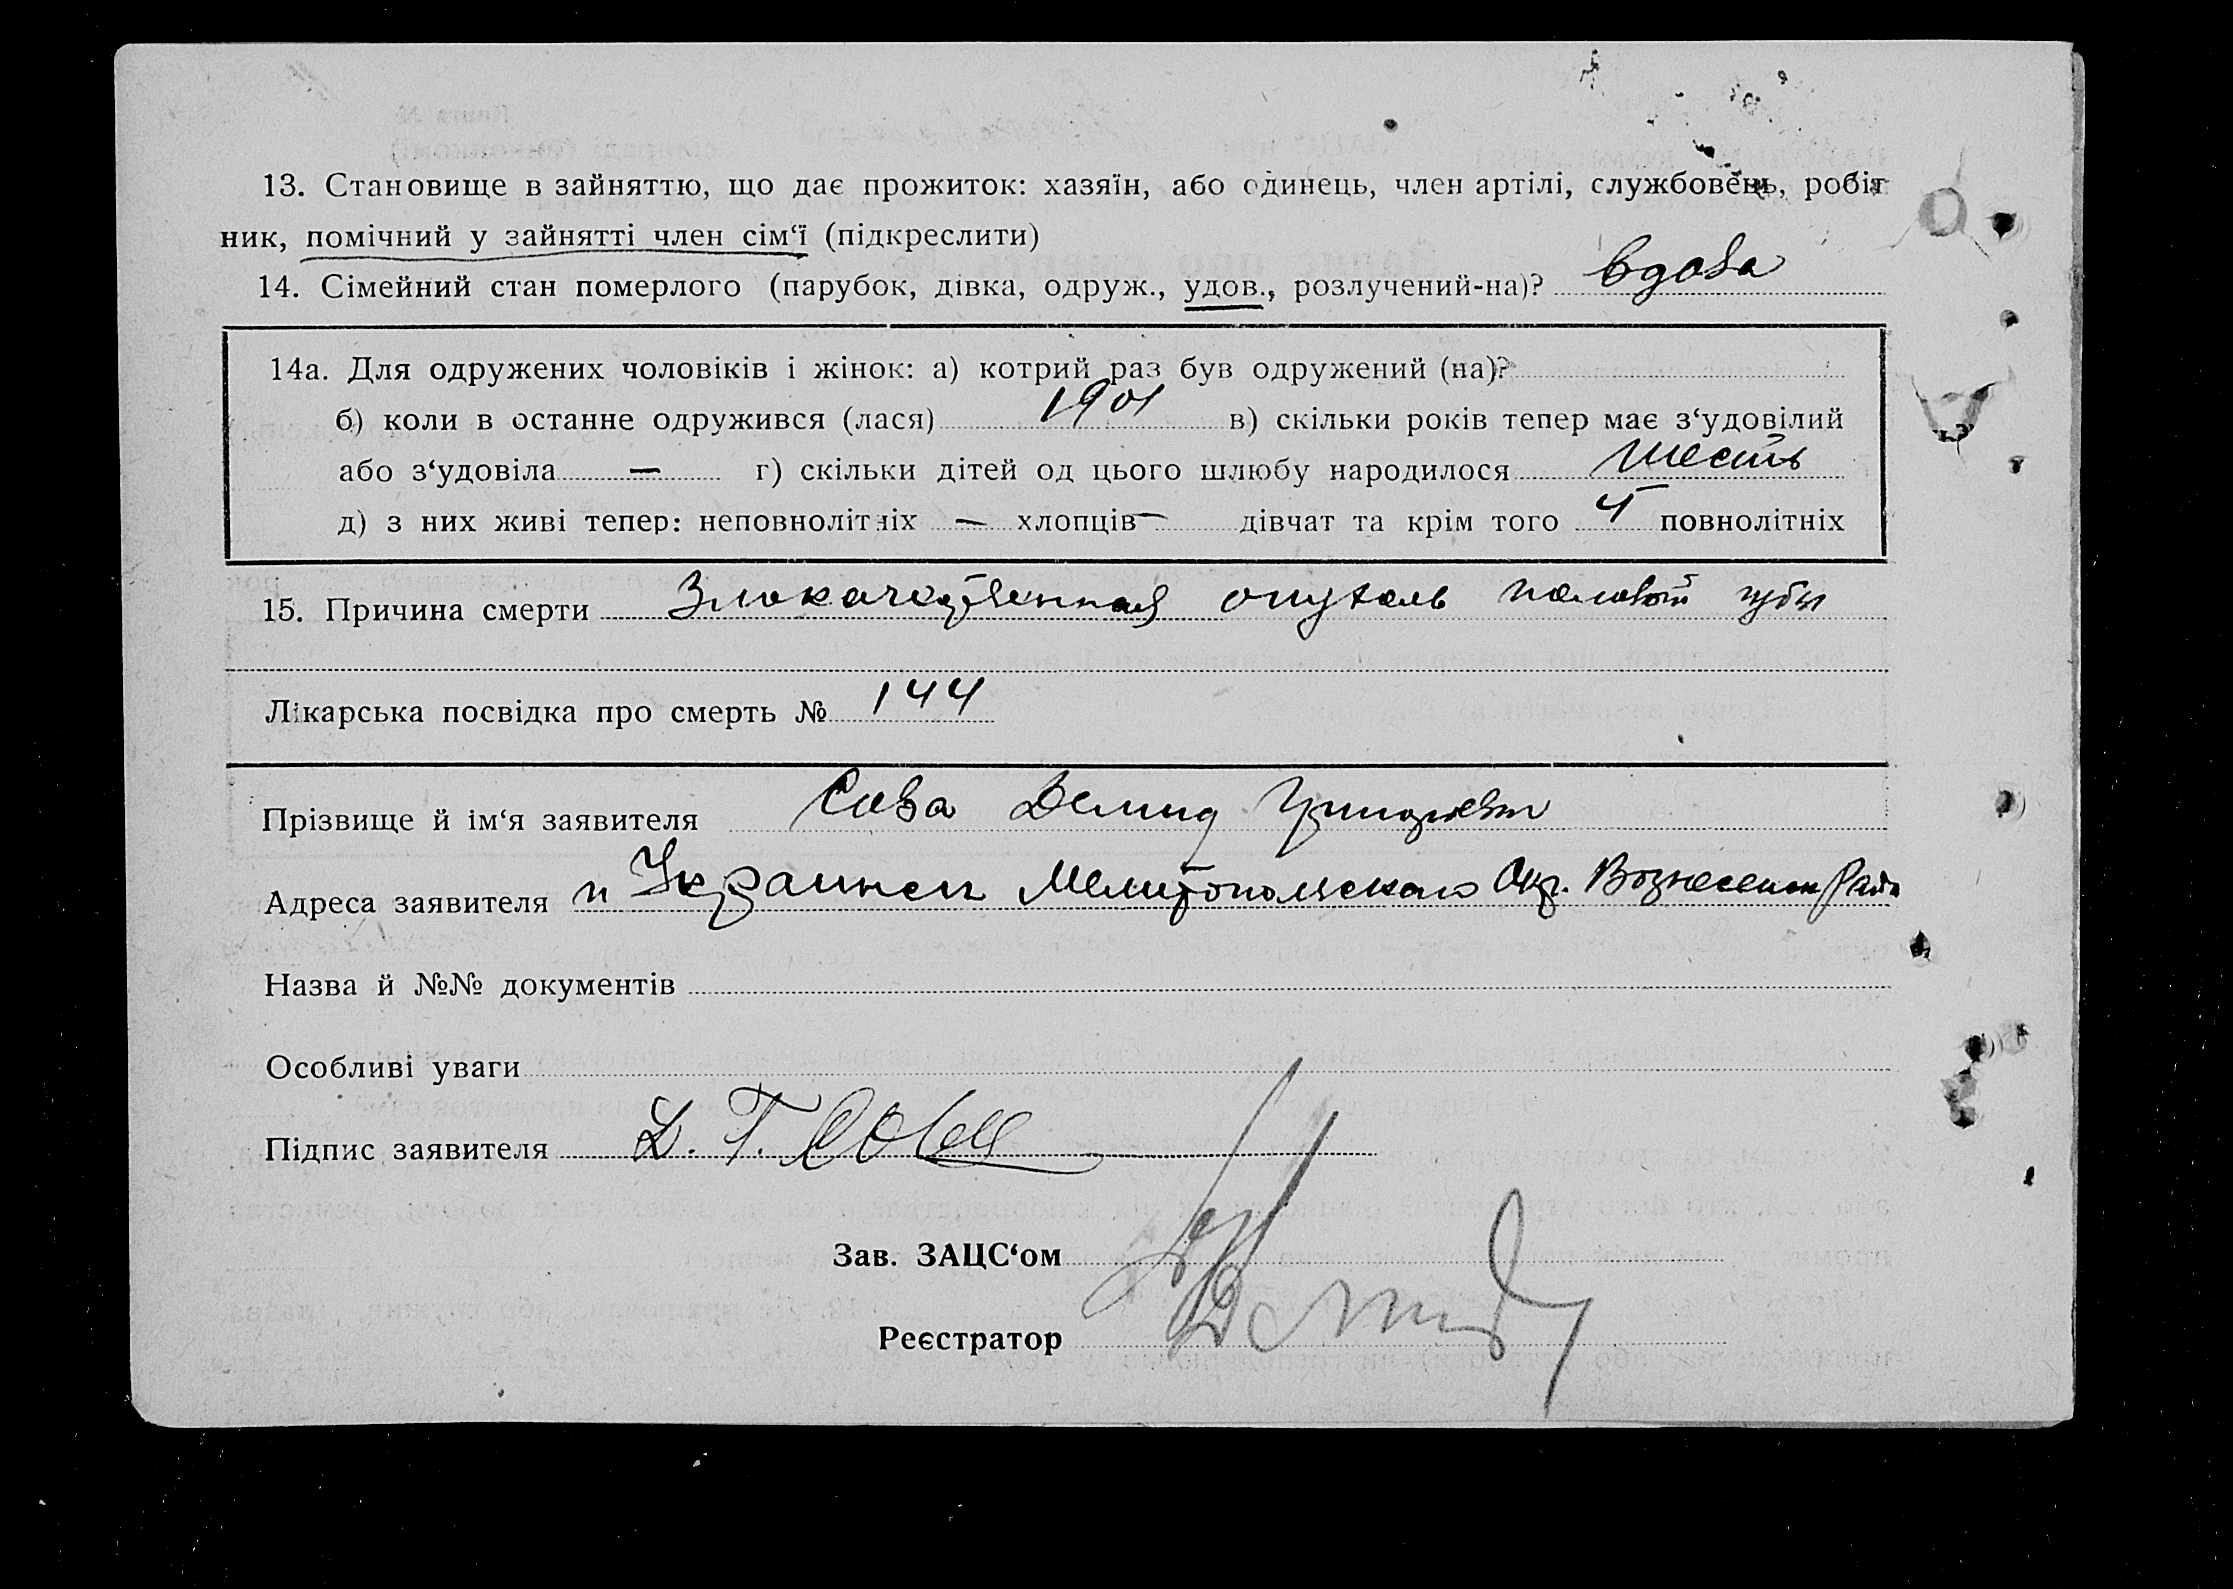 13. Становище в зайняттю, що дає прожиток: хазяїн, або одинець, член артілі, службовець, робіт
ник, помічний у зайнятті член сім‘ї (підкреслити)
14. Сімейний стан померлого (парубок, дівка, одруж., удов., розлучений-на)? вдова
14а. Для одружених чоловіків і жінок: а) котрий раз був одружений (на)?
б) коли в останне одружився (лася) 1901 в) скільки років тепер має з‘удовілий
або з‘удовіла — г) скільки дітей од цього шлюбу народилося шесть
д) з них живі тепер: неповнолітніх — хлопців — дівчат та крім того 4 повнолітніх
15. Причина смерти Злокачественная опухоль половой губы
Лікарська посвідка про смерть № 144
Прізвище й ім‘я заявителя Сова Демид Григорьевич
Адреса заявителя п Украинск Мелитопольского Окр. Вознесенск Рай
Назва й №№ документів
Особливі уваги
Підпис заявителя Д. Г. Сова
Зав. ЗАЦС‘ом
Реєстратор